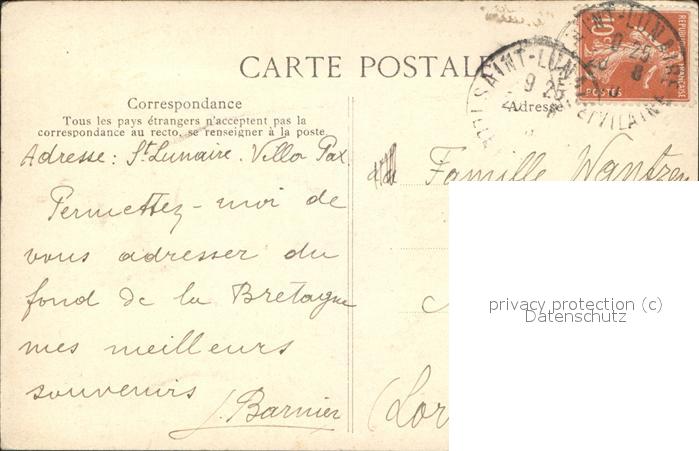 CARTE POSTALE
Correspondance
Tous les pays étrangers n'acceptent pas la
correspondance au recto, se renseigner à la poste
Adresse
RÉPUBLIQUE FRANÇAISE
10
POSTES
SAINT-LUNAIRE
9 25
8
ILLE ET VILAINE
Adresse : St Lunaire. Villa Pax.
Permettez-moi de
vous adresser du
fond de la Bretagne
mes meilleurs
souvenirs
J. Barnier
Famille Wantzen
(Lor
privacy protection (c)
Datenschutz